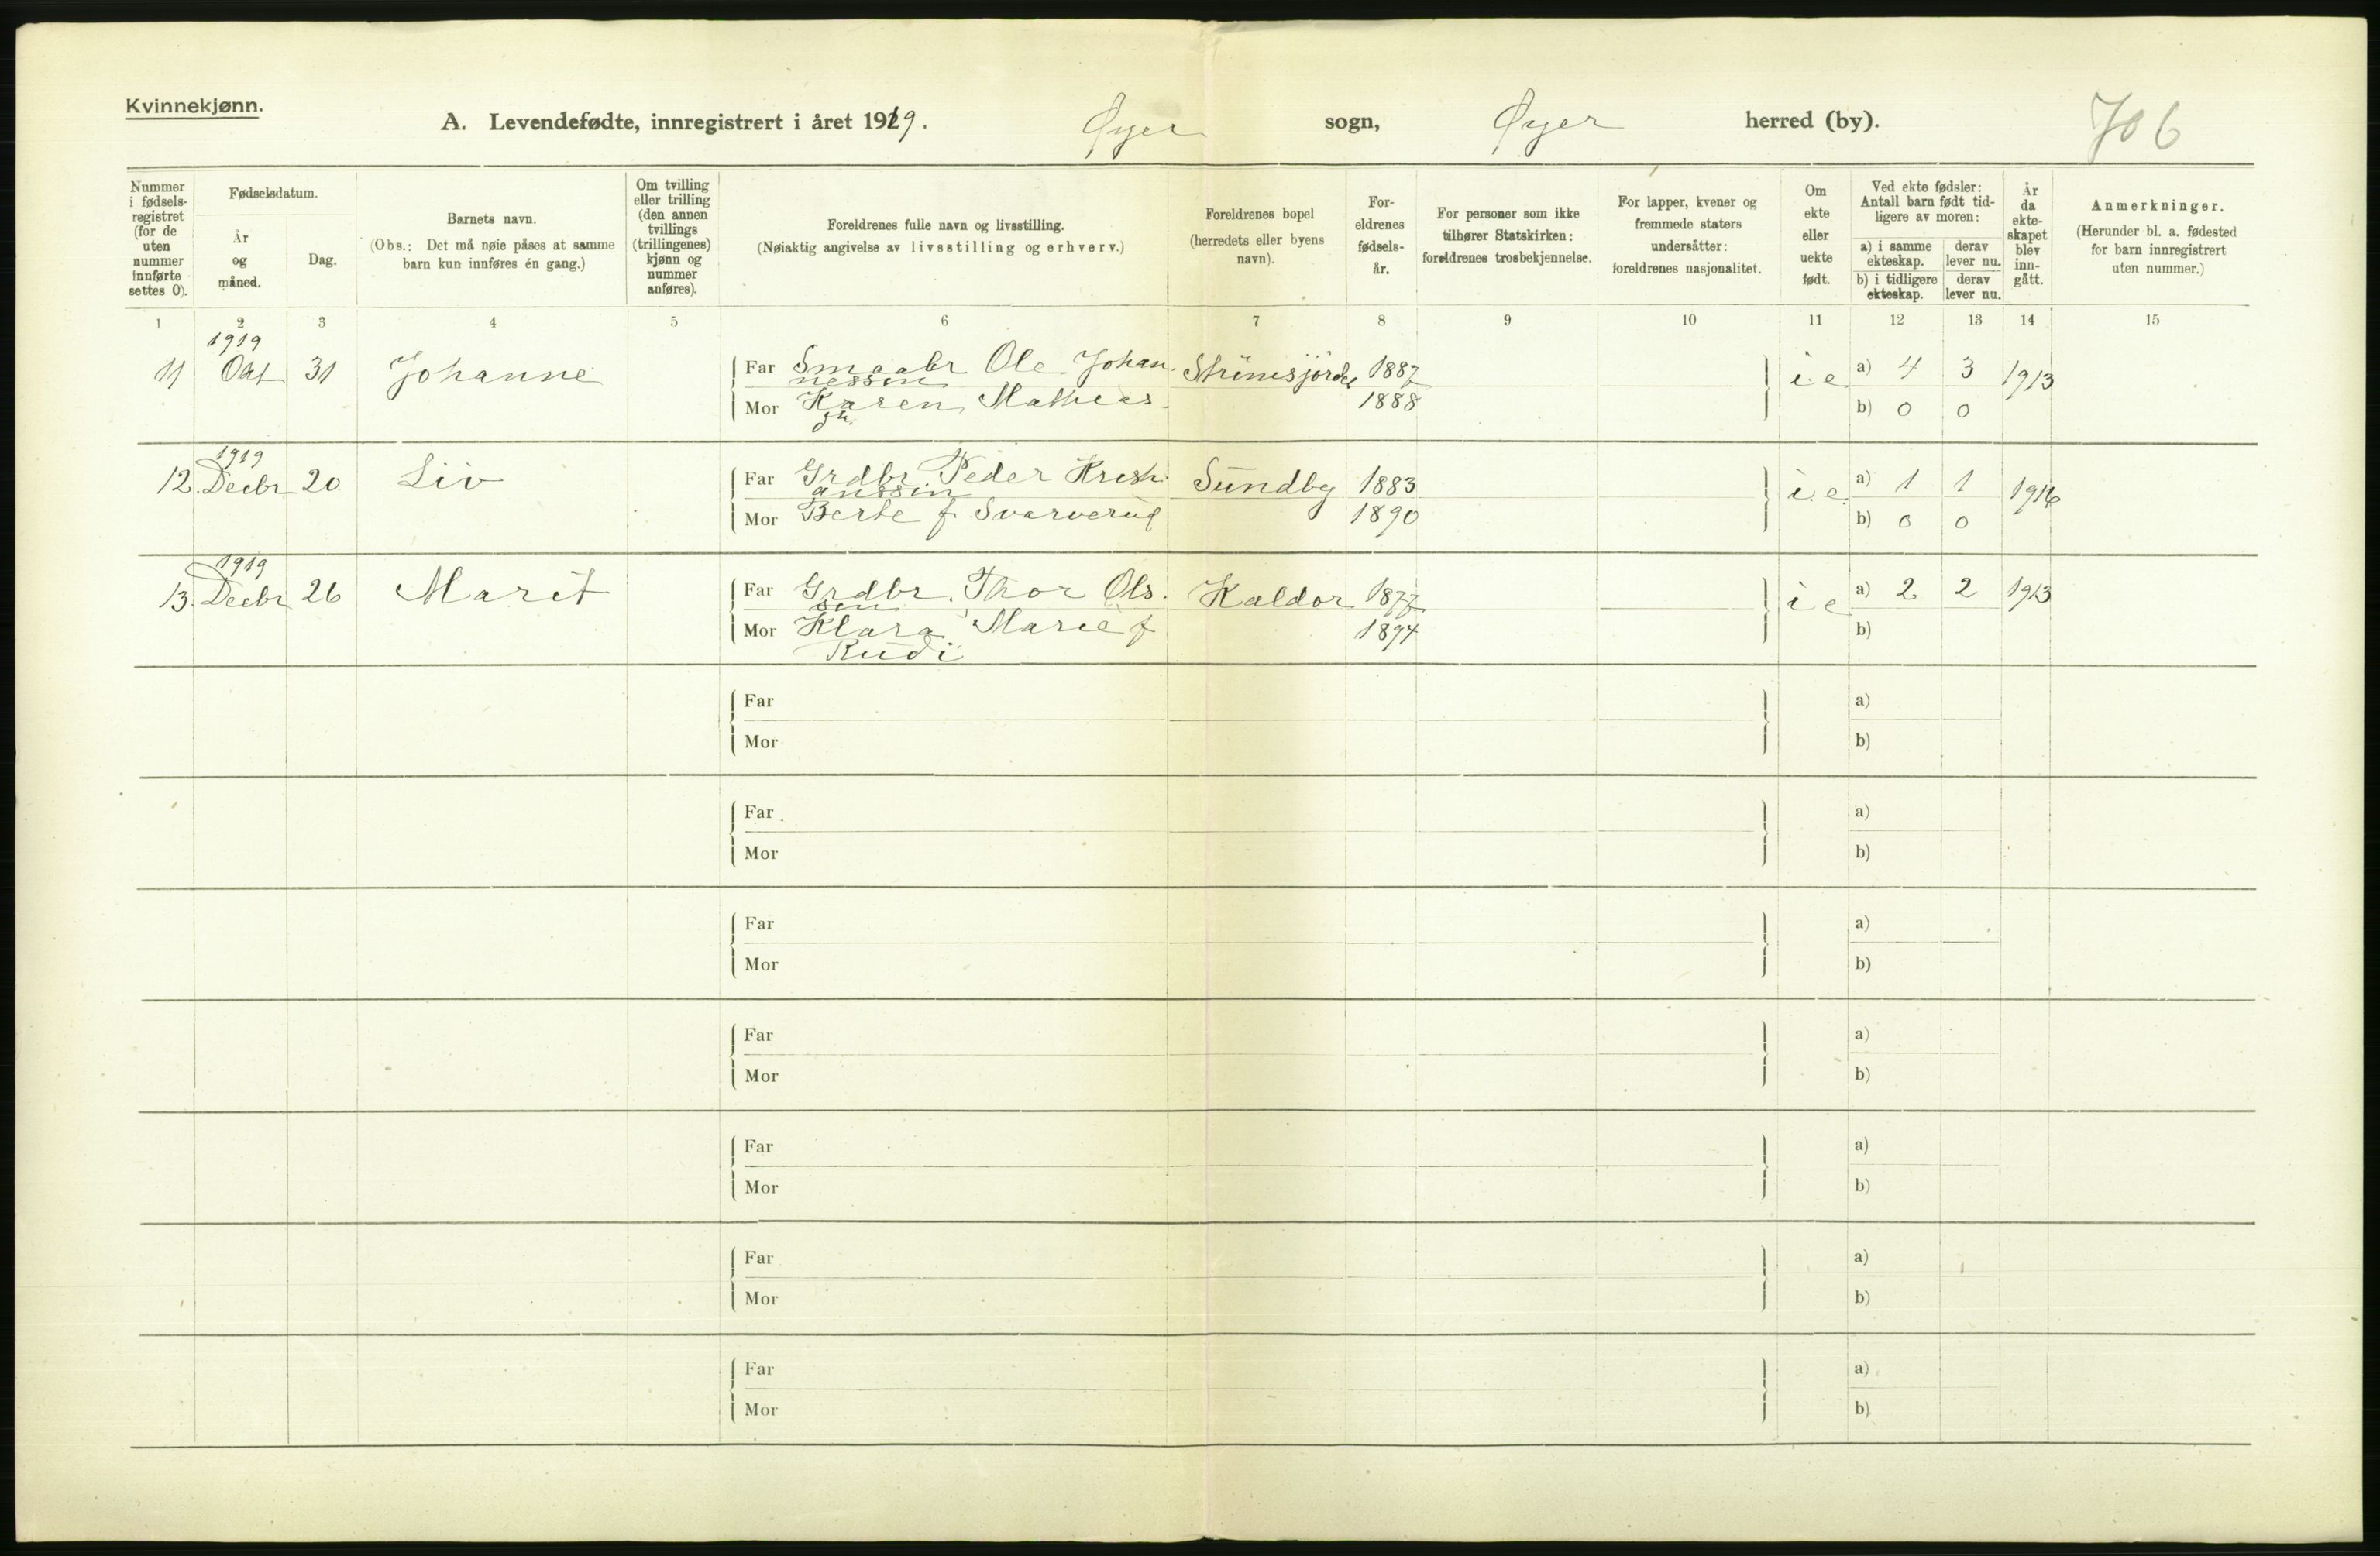 Kvinnekjønn.
A. Levendefødte, innregistrert i året 1919. Øyer sogn, Øyer herred (by). 706
Nummer i fødsels-registret (for de uten nummer innførte settes 0).
Fødselsdatum.
År og måned.
Dag.
Barnets navn.
(Obs.: Det må nøie påses at samme barn kun innføres én gang.)
Om tvilling eller trilling (den annen tvillings (trillingenes) kjønn og nummer anføres).
Foreldrenes fulle navn og livsstilling.
(Nøiaktig angivelse av livsstilling og erhverv.)
Foreldrenes bopel (herredets eller byens navn).
For-eldrenes fødsels-år.
For personer som ikke tilhører Statskirken: foreldrenes trosbekjennelse.
For lapper, kvener og fremmede staters undersåtter: foreldrenes nasjonalitet.
Om ekte eller uekte født.
Ved ekte fødsler: Antall barn født tid-ligere av moren:
a) i samme ekteskap.
derav lever nu.
b) i tidligere ekteskap.
derav lever nu.
År da ekte-skapet blev inn-gått.
Anmerkninger.
(Herunder bl. a. fødested for barn innregistrert uten nummer.)
1 2 3 4 5 6 7 8 9 10 11 12 13 14 15
1919
11 Okt 31 Johanne Far Smaabr Ole Johan- 1887 i e a) 4 3 1913
nessen
Mor Karen Matheas 1888 b) 0 0
1919
12. Decbr 20 Liv Far Grdbr. Peder Kristi Sundby 1883 i. e. a) 1 1 1916
anssen
Mor Berte f Svarverud 1890 b) 0 0
1919
13. Decbr 26 Marit Far Grdbr. Thor Ols. Kaldor 1877 i e a) 2 2 1913
sen
Mor Klara Marie f 1894 b)
Rudi
Far a)
Mor b)
Far a)
Mor b)
Far a)
Mor b)
Far a)
Mor b)
Far a)
Mor b)
Far a)
Mor b)
Far a)
Mor b)